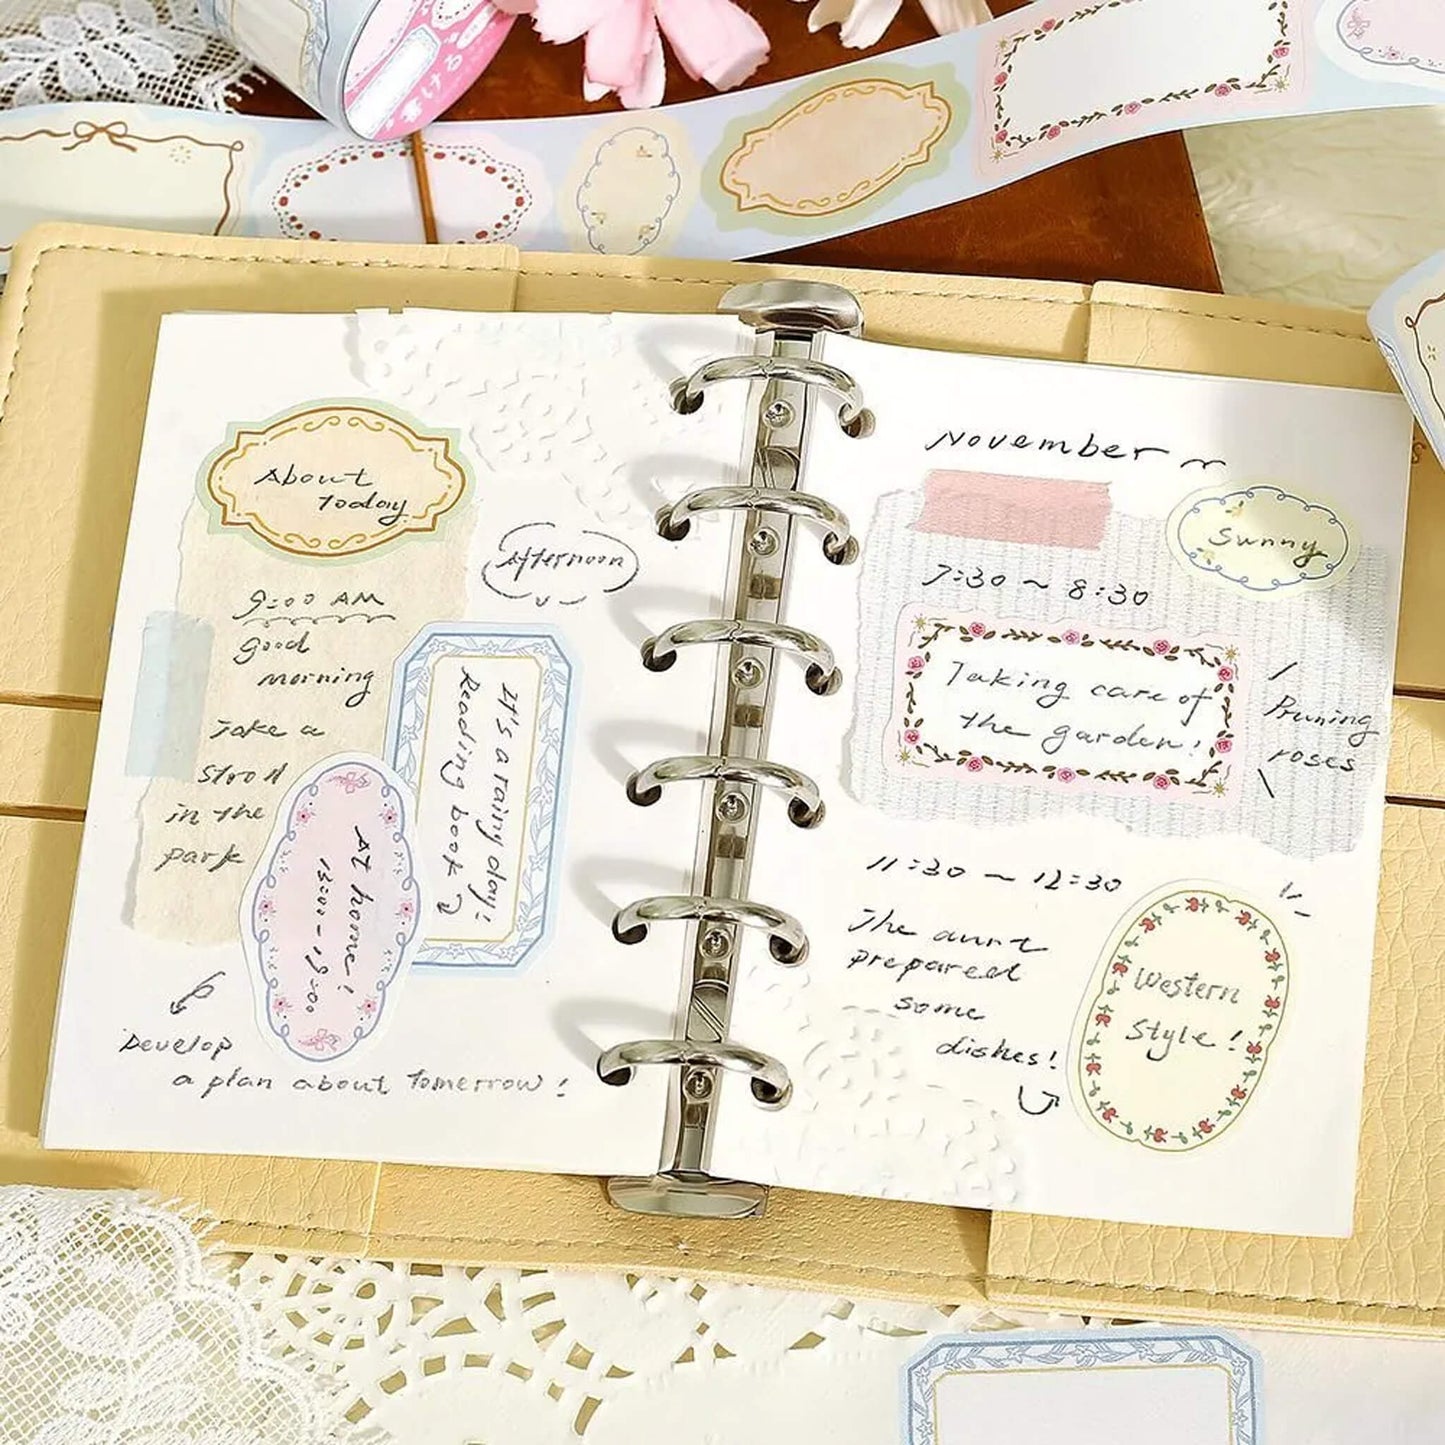 書ける
About
Today
Afternoon
9:00 AM
Good
morning
Take a
stroll
in the
park
It's a rainy day!
Reading book
At home!
13:00-19:00
Develop
a plan about Tomerrow!
November
Sunny
7:30 ~ 8:30
Taking care of
the garden!
Pruning
roses
11:30 ~ 12:30
The aunt
prepareed
some
dishes!
Western
Style!